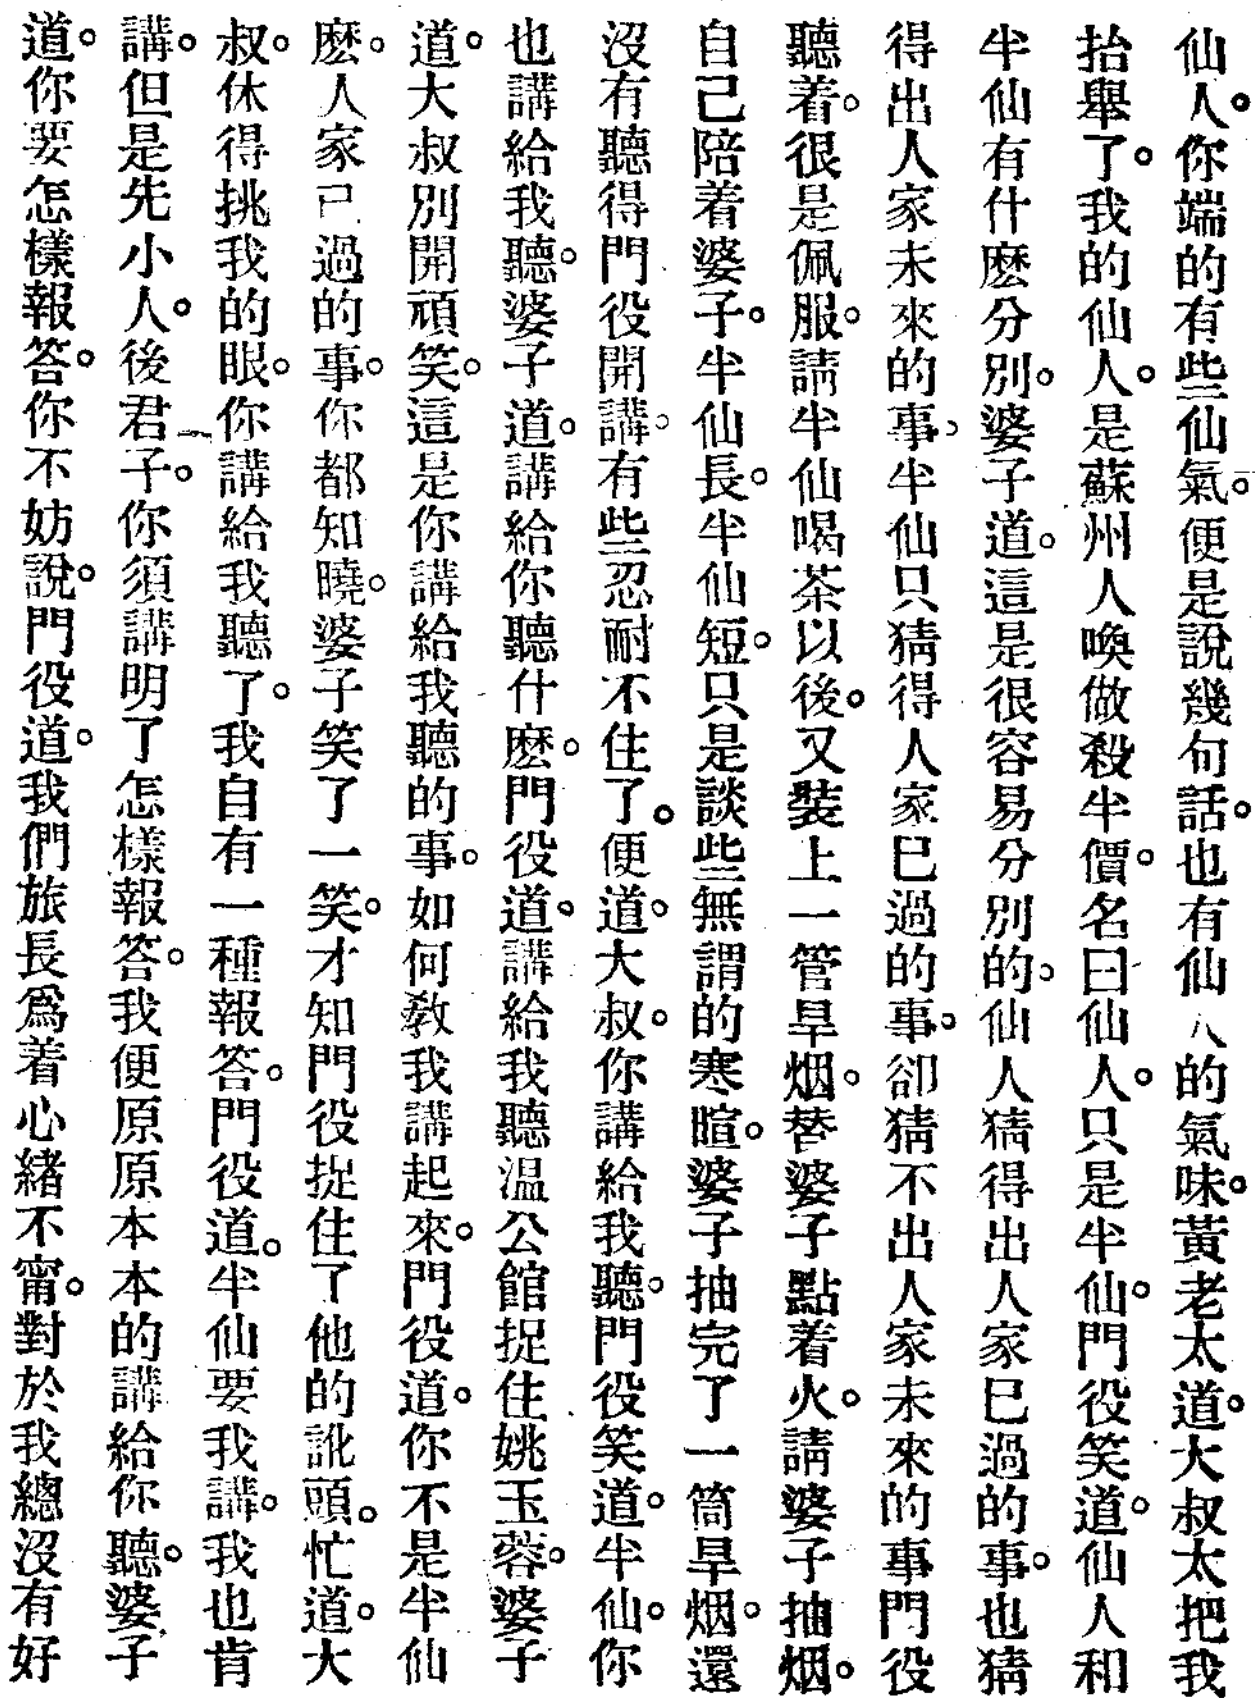 仙人。你端的有些仙氣。便是說幾句話。也有仙人的氣味。黃老太道。大叔太把我
抬舉了。我的仙人。是蘇州人喚做殺半價。名曰仙人。只是半仙。門役笑道。仙人和
半仙有什麽分別。婆子道。這是很容易分別的。仙人猜得出人家已過的事。也猜
得出人家未來的事。半仙只猜得人家已過的事。卻猜不出人家未來的事門役
聽着。很是佩服。請半仙喝茶以後。又裝上一管旱烟。替婆子點着火。請婆子抽烟。
自己陪着婆子。半仙長。半仙短。只是談些無謂的寒暄。婆子抽完了一筒旱烟。還
沒有聽得門役開講。有些忍耐不住了。便道。大叔。你講給我聽。門役笑道。半仙。你
也講給我聽。婆子道。講給你聽什麽。門役道。講給我聽溫公館捉住姚玉蓉。婆子
道。大叔別開頑笑。這是你講給我聽的事。如何教我講起來。門役道。你不是半仙
麽。人家已過的事。你都知曉。婆子笑了一笑。才知門役捉住了他的訛頭。忙道。大
叔。休得挑我的眼。你講給我聽了。我自有一種報答。門役道。半仙要我講。我也肯
講。但是先小人。後君子。你須講明了怎樣報答。我便原原本本的講給你聽。婆子
道。你要怎樣報答。你不妨說。門役道。我們旅長爲着心緒不甯。對於我總沒有好